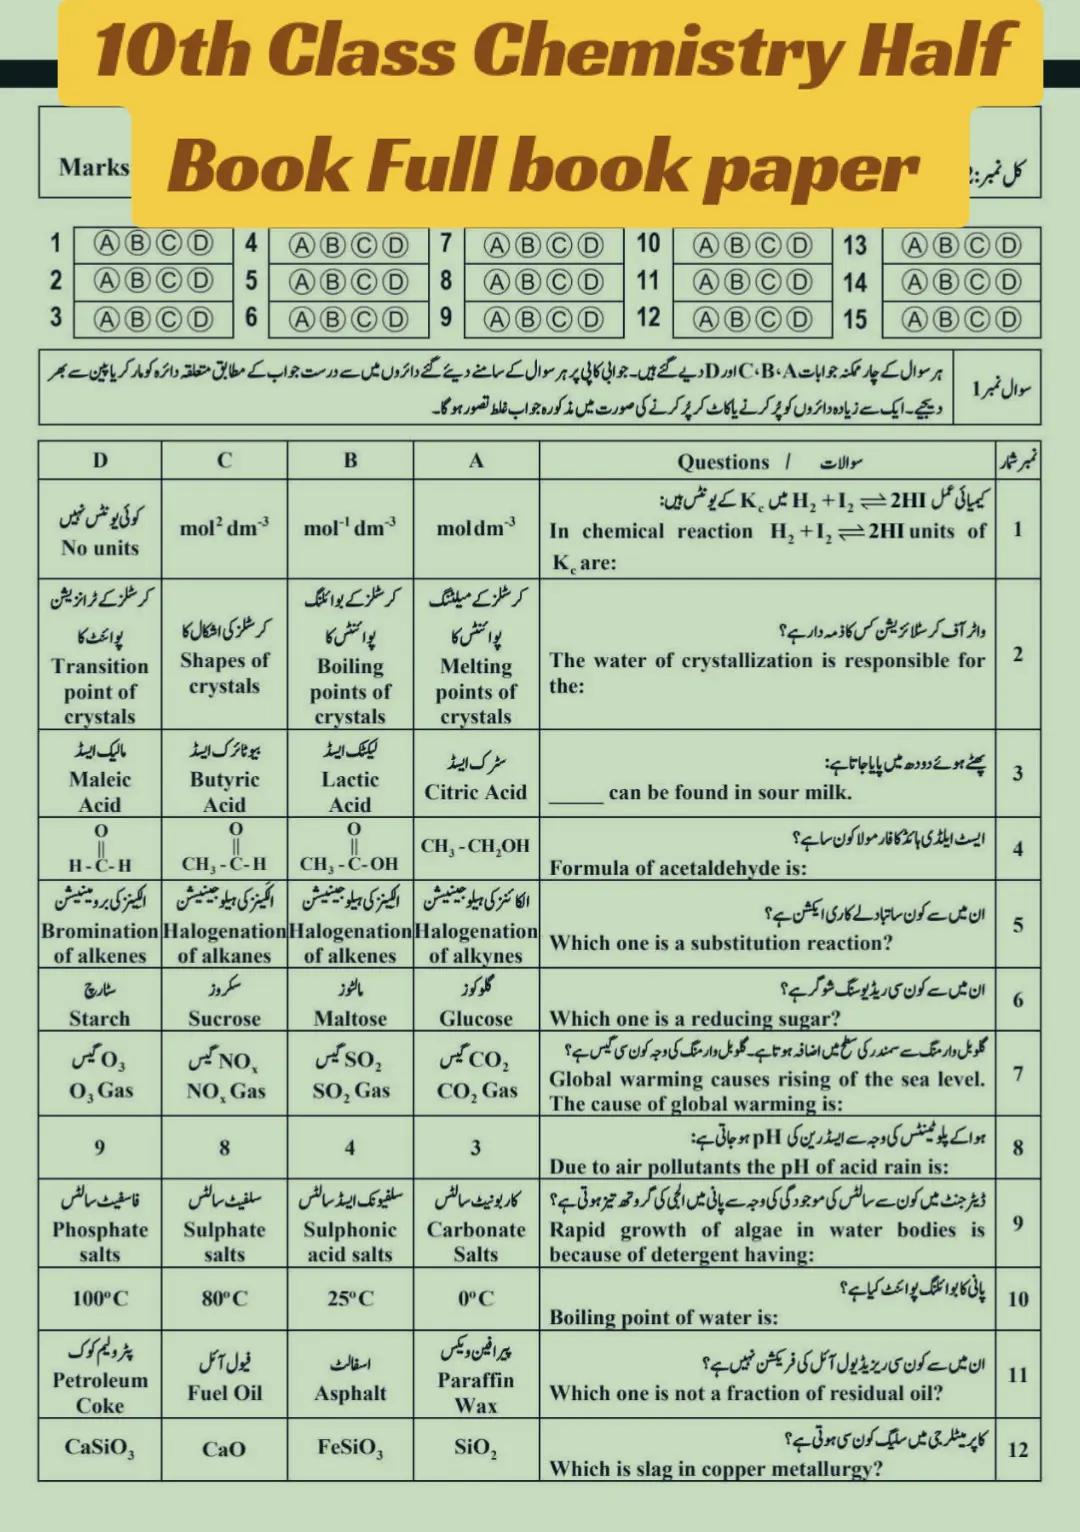 10th Class Chemistry Half
Book Full book paper
Marks
کل نمبر:
1 Ⓐ Ⓑ Ⓒ Ⓓ 4 Ⓐ Ⓑ Ⓒ Ⓓ 7 Ⓐ Ⓑ Ⓒ Ⓓ 10 Ⓐ Ⓑ Ⓒ Ⓓ 13 Ⓐ Ⓑ Ⓒ Ⓓ
2 Ⓐ Ⓑ Ⓒ Ⓓ 5 Ⓐ Ⓑ Ⓒ Ⓓ 8 Ⓐ Ⓑ Ⓒ Ⓓ 11 Ⓐ Ⓑ Ⓒ Ⓓ 14 Ⓐ Ⓑ Ⓒ Ⓓ
3 Ⓐ Ⓑ Ⓒ Ⓓ 6 Ⓐ Ⓑ Ⓒ Ⓓ 9 Ⓐ Ⓑ Ⓒ Ⓓ 12 Ⓐ Ⓑ Ⓒ Ⓓ 15 Ⓐ Ⓑ Ⓒ Ⓓ
سوال نمبر 1
ہر سوال کے چار ممکنہ جوابات C،B،A اور D دیے گئے ہیں۔ جوابی کاپی پر ہر سوال کے سامنے دیئے گئے دائروں میں سے درست جواب کے مطابق متعلقہ دائرہ کو مارکر یا پین سے بھر
دیجیے۔ ایک سے زیادہ دائروں کو پُر کرنے یا کاٹ کر پُر کرنے کی صورت میں مذکورہ جواب غلط تصور ہو گا۔
نمبر شمار
سوالات / Questions
A
B
C
D
1
کیمیائی عمل H₂ + I₂ ⇌ 2HI میں Kc کے یونٹس ہیں:
In chemical reaction H₂ + I₂ ⇌ 2HI units of
Kc are:
mol dm⁻³
mol⁻¹ dm⁻³
mol² dm⁻³
کوئی یونٹس نہیں
No units
2
واٹر آف کرسٹلائزیشن کس کا ذمہ دار ہے؟
The water of crystallization is responsible for
the:
کرسٹلز کے میلٹنگ
پوائنٹس کا
Melting
points of
crystals
کرسٹلز کے بوائلنگ
پوائنٹس کا
Boiling
points of
crystals
کرسٹلز کی اشکال کا
Shapes of
crystals
کرسٹلز کے ٹرانزیشن
پوائنٹ کا
Transition
point of
crystals
3
پھٹے ہوئے دودھ میں پایا جاتا ہے:
_____ can be found in sour milk.
سٹرک ایسڈ
Citric Acid
لیکٹک ایسڈ
Lactic
Acid
بیوٹائرک ایسڈ
Butyric
Acid
مالیک ایسڈ
Maleic
Acid
4
ایسٹ ایلڈی ہائڈ کا فارمولا کون سا ہے؟
Formula of acetaldehyde is:
CH₃ - CH₂OH
O
||
CH₃ - C - OH
O
||
CH₃ - C - H
O
||
H - C - H
5
ان میں سے کون سا تبادلے کا ری ایکشن ہے؟
Which one is a substitution reaction?
الکائنز کی ہیلوجینیشن
Halogenation
of alkynes
الکینز کی ہیلوجینیشن
Halogenation
of alkenes
الکینز کی ہیلوجینیشن
Halogenation
of alkanes
الکینز کی برومینیشن
Bromination
of alkenes
6
ان میں سے کون سی ریڈیوسنگ شوگر ہے؟
Which one is a reducing sugar?
گلوکوز
Glucose
مالٹوز
Maltose
سکروز
Sucrose
سٹارچ
Starch
7
گلوبل وارمنگ سے سمندر کی سطح میں اضافہ ہوتا ہے۔ گلوبل وارمنگ کی وجہ کون سی گیس ہے؟
Global warming causes rising of the sea level.
The cause of global warming is:
CO₂ گیس
CO₂ Gas
SO₂ گیس
SO₂ Gas
NOₓ گیس
NOₓ Gas
O₃ گیس
O₃ Gas
8
ہوا کے پلوٹینٹس کی وجہ سے ایسڈ رین کی pH ہو جاتی ہے:
Due to air pollutants the pH of acid rain is:
3
4
8
9
9
ڈیٹرجنٹ میں کون سے سالٹس کی موجودگی کی وجہ سے پانی میں الجی کی گروتھ تیز ہوتی ہے؟
Rapid growth of algae in water bodies is
because of detergent having:
کاربونیٹ سالٹس
Carbonate
Salts
سلفیونک ایسڈ سالٹس
Sulphonic
acid salts
سلفیٹ سالٹس
Sulphate
salts
فاسفیٹ سالٹس
Phosphate
salts
10
پانی کا بوائلنگ پوائنٹ کیا ہے؟
Boiling point of water is:
0°C
25°C
80°C
100°C
11
ان میں سے کون سی ریزیڈیول آئل کی فریکشن نہیں ہے؟
Which one is not a fraction of residual oil?
پیرافین ویکس
Paraffin
Wax
اسفالٹ
Asphalt
فیول آئل
Fuel Oil
پٹرولیم کوک
Petroleum
Coke
12
کاپر میٹلرجی میں سلیگ کون سی ہوتی ہے؟
Which is slag in copper metallurgy?
SiO₂
FeSiO₃
CaO
CaSiO₃